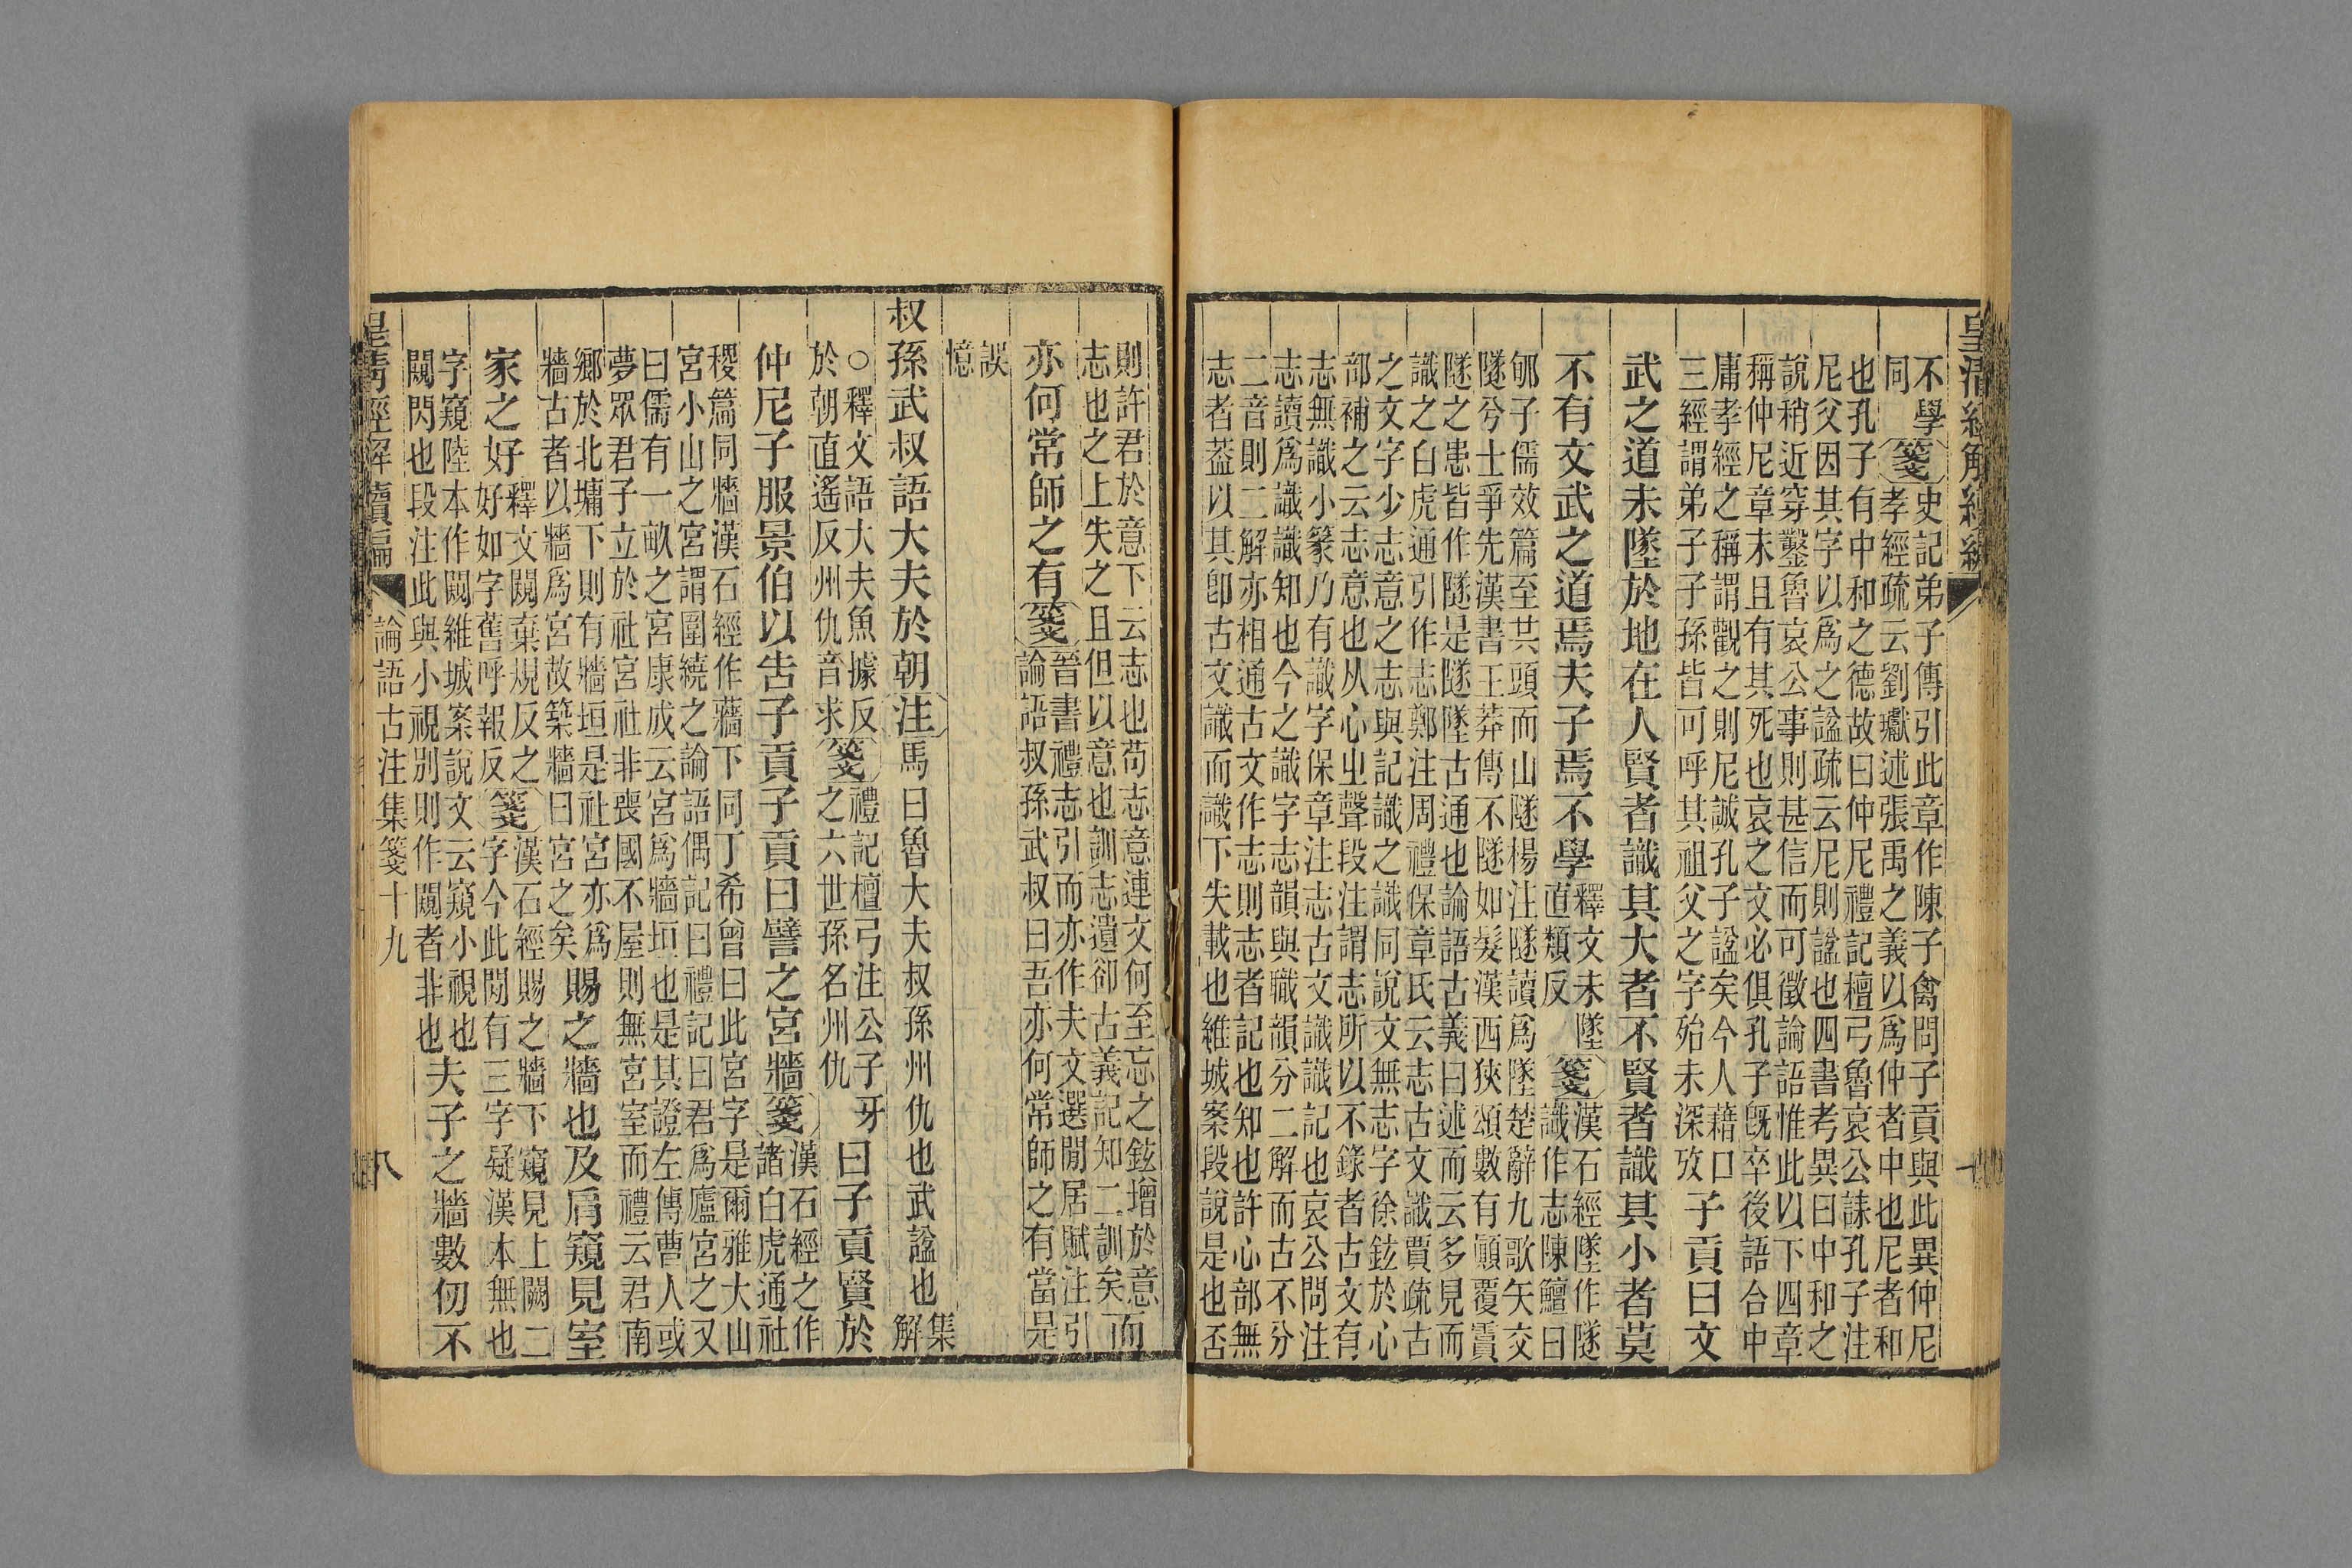 皇清經解續編
不學 箋 史記弟子傳引此章作陳子禽問子貢與此異仲尼
同 孝經疏云劉瓛述張禹之義以爲仲者中也尼者和
也孔子有中和之德故曰仲尼禮記檀弓魯哀公誄孔子注
尼父因其字以爲之諡疏云尼則諡也四書考異曰中和之
說稍近穿鑿魯哀公事則甚信而可徵論語惟此以下四章
稱仲尼章末且有其死也哀之文必俱孔子旣卒後語合中
庸孝經之稱謂觀之則尼誠孔子諡矣今人藉口
三經謂弟子子孫皆可呼其祖父之字殆未深攷
子貢曰文
武之道未墜於地在人賢者識其大者不賢者識其小者莫
不有文武之道焉夫子焉不學
釋文未墜
直類反
箋
漢石經墜作隧
識作志陳鱣曰
郇子儒效篇至共頭而山隧楊注隧讀爲墜楚辭九歌矢交
隧兮士爭先漢書王莽傳不隧如髮漢西狹頌數有顚覆霣
隧之患皆作隧是隧墜古通也論語古義曰述而云多見而
識之白虎通引作志鄭注周禮保章氏云志古文識賈疏古
之文字少志意之志與記識之識同說文無志字徐鉉於心
部補之云志意也从心㞢聲段注謂志所以不錄者古文有
志無識小篆乃有識字保章注志古文識識記也哀公問注
志讀爲識識知也今之識字志韻與職韻分二解而古不分
二音則二解亦相通古文作志則志者記也知也許心部無
志者蓋以其卽古文識而識下失載也維城案段說是也否
則許君於意下云志也苟志意連文何至忘之鉉增於意
志也之上失之且但以意也訓志遺卻古義記知二訓矣
而
亦何常師之有
箋
晉書禮志引而亦作夫文選閒居賦注引
論語叔孫武叔曰吾亦何常師之有當是
誤
憶
叔孫武叔語大夫於朝
注
馬曰魯大夫叔孫州仇也武諡也
集
解
○釋文語大夫魚據反
於朝直遙反州仇音求
箋
禮記檀弓注公子牙
之六世孫名州仇
曰子貢賢於
仲尼子服景伯以告子貢子貢曰譬之宮牆
箋
漢石經之作
諸白虎通社
稷篇同牆漢石經作蘠下同丁希曾曰此宮字是爾雅大山
宮小山之宮謂圍繞之論語偶記曰禮記曰君爲廬宮之又
曰儒有一畝之宮康成云宮爲牆垣也是其證左傳曹人或
夢眾君子立於社宮社非喪國不屋則無宮室而禮云君南
鄉於北墉下則有牆垣是社宮亦爲
牆古者以牆爲宮故築牆曰宮之矣
賜之牆也及肩窺見室
家之好
釋文闚棄規反之
好好如字舊呼報反
箋
漢石經賜之牆下窺見上闕二
字今此閒有三字疑漢本無也
字窺陸本作闚維城案說文云窺小視也
闚閃也段注此與小視別則作闚者非也
夫子之牆數仞不
皇清經解續編 論語古注集箋十九 八